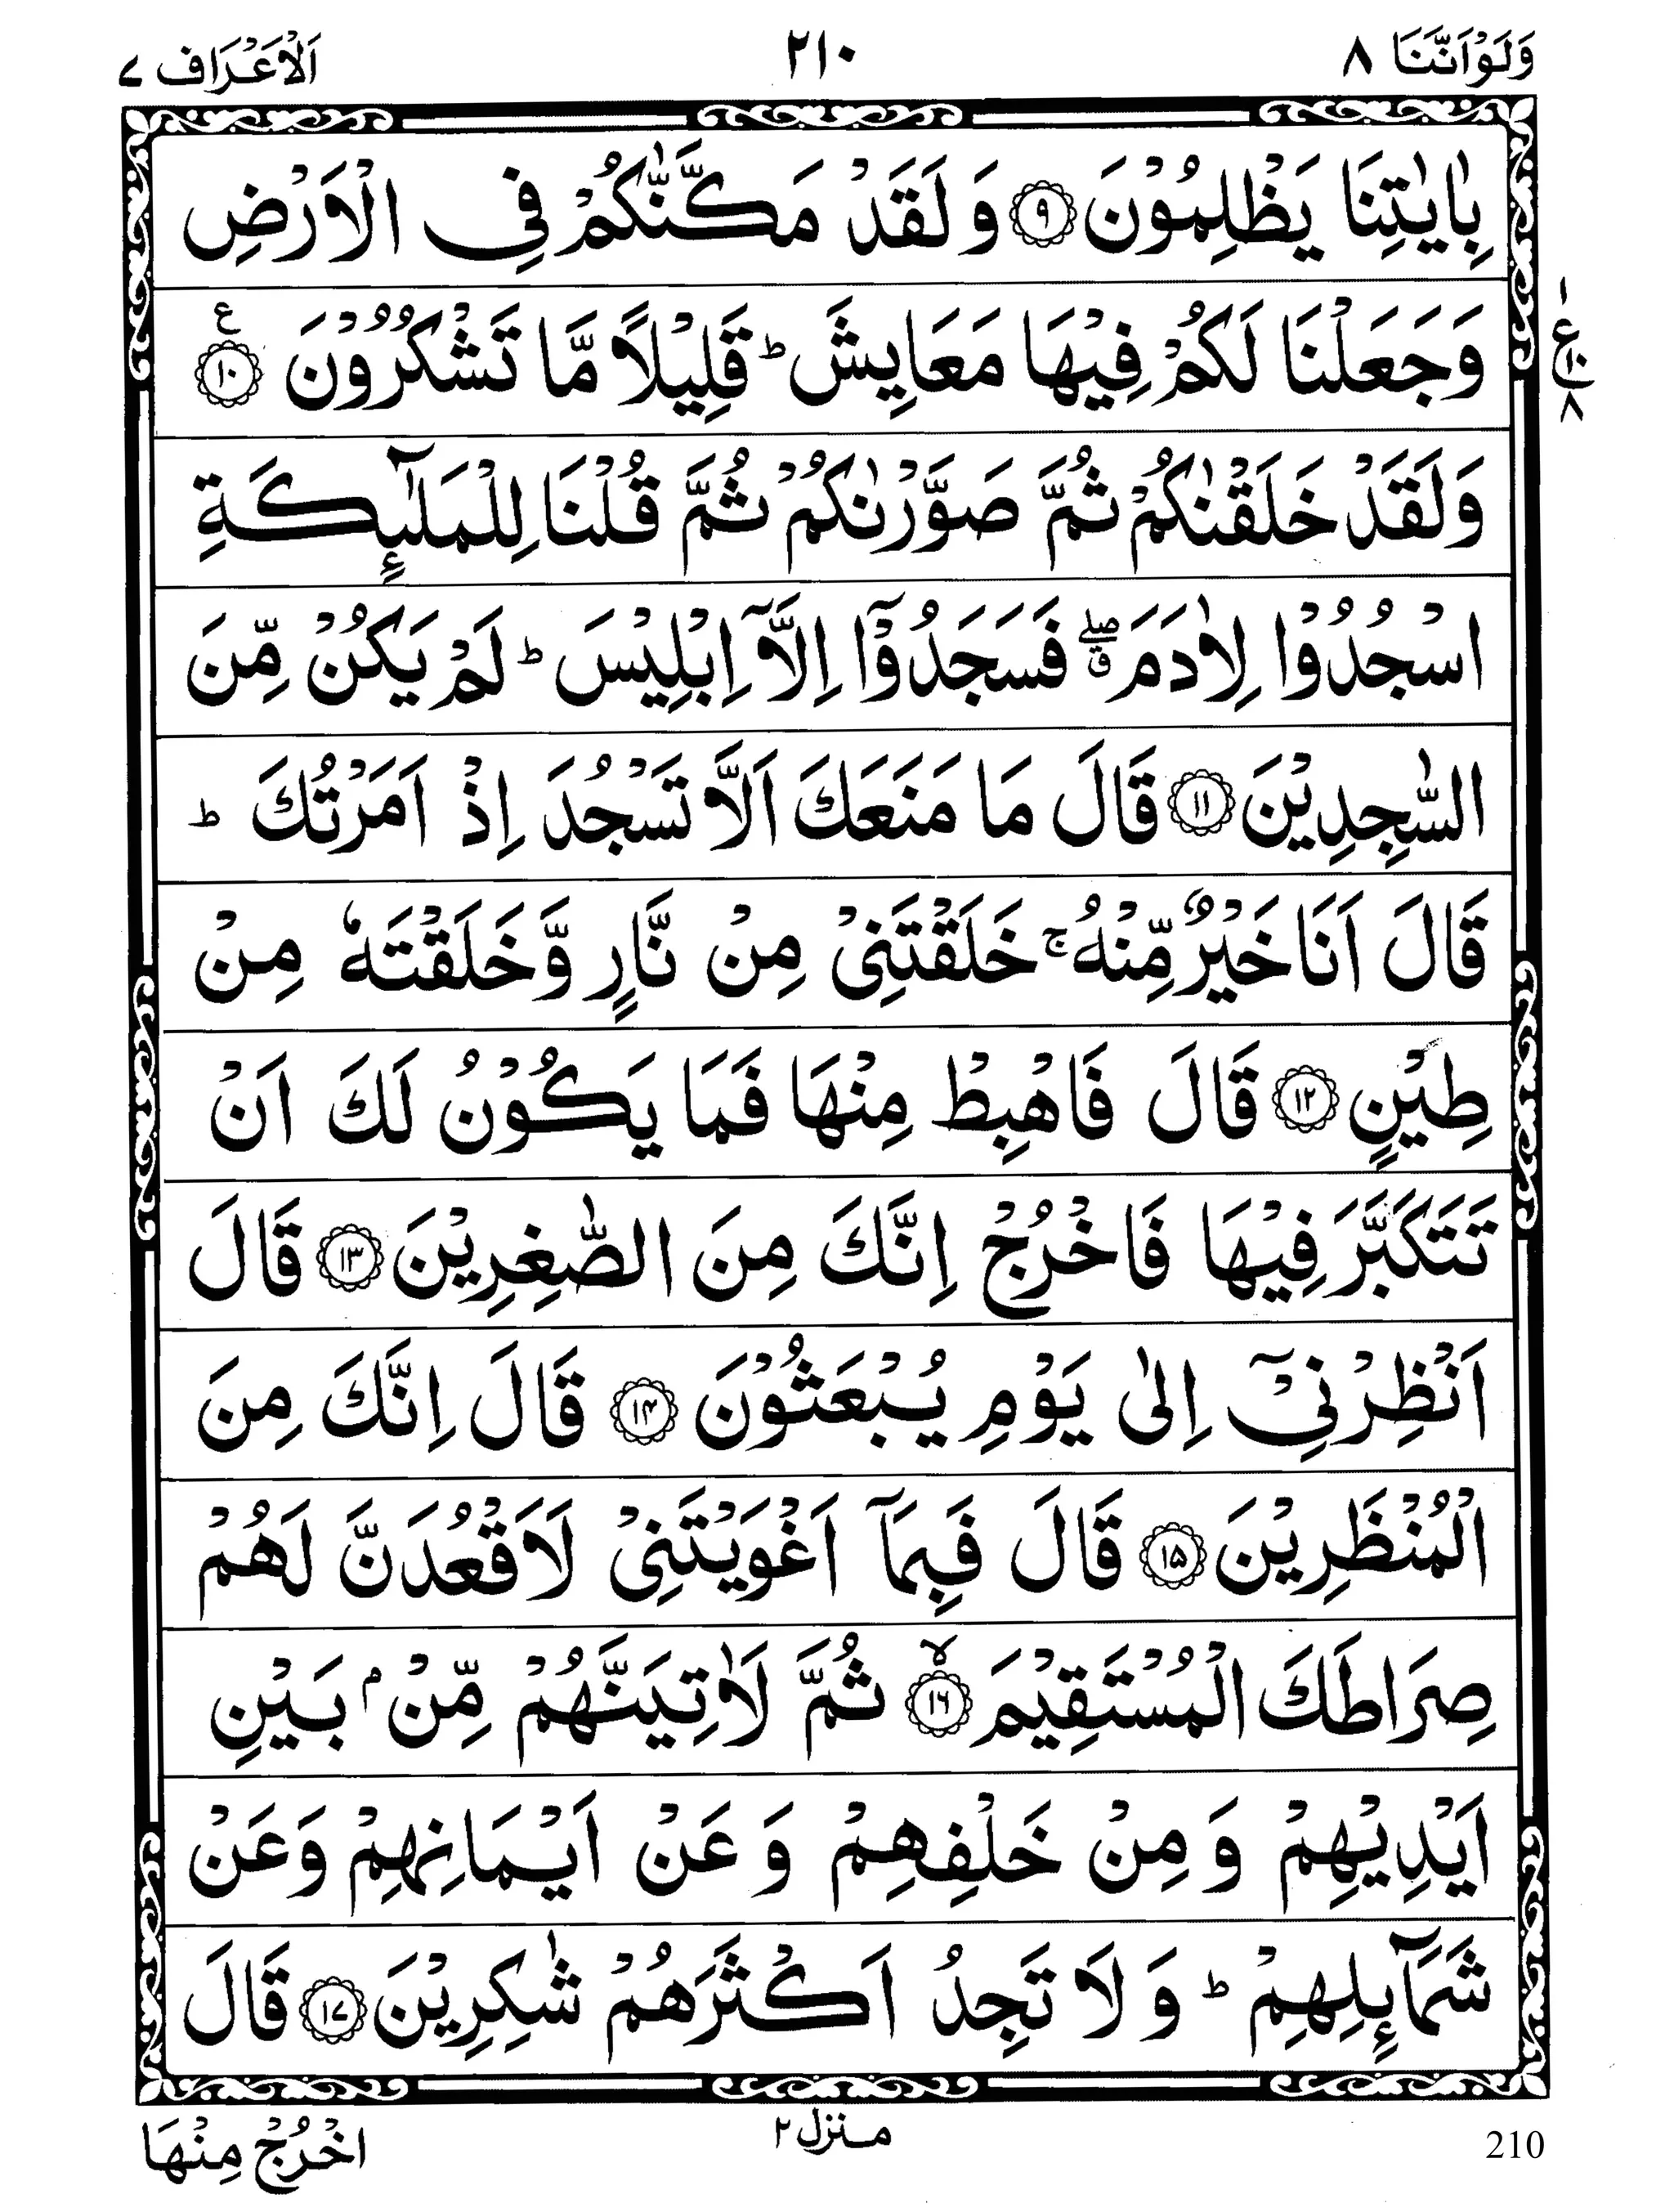 وَلَوْاَنَّنَا ٨
٢١٠
اَلْاَعْرَاف ٧
بِاٰيٰتِنَا يَظْلِمُوْنَ ﴿٩﴾ وَ لَقَدْ مَكَّنّٰكُمْ فِي الْاَرْضِ
وَجَعَلْنَا لَكُمْ فِيْهَا مَعَايِشَ ؕ قَلِيْلًا مَّا تَشْكُرُوْنَ ﴿١٠﴾ ع
١ ع ١٠ ٨
وَلَقَدْ خَلَقْنٰكُمْ ثُمَّ صَوَّرْنٰكُمْ ثُمَّ قُلْنَا لِلْمَلٰٓئِكَةِ
اسْجُدُوْا لِاٰدَمَ ۖۗ فَسَجَدُوْۤا اِلَّاۤ اِبْلِيْسَ ؕ لَمْ يَكُنْ مِّنَ
السّٰجِدِيْنَ ﴿١١﴾ قَالَ مَا مَنَعَكَ اَلَّا تَسْجُدَ اِذْ اَمَرْتُكَ ؕ
قَالَ اَنَا خَيْرٌ مِّنْهُ ۚ خَلَقْتَنِيْ مِنْ نَّارٍ وَّخَلَقْتَهٗ مِنْ
طِيْنٍ ﴿١٢﴾ قَالَ فَاهْبِطْ مِنْهَا فَمَا يَكُوْنُ لَكَ اَنْ
تَتَكَبَّرَ فِيْهَا فَاخْرُجْ اِنَّكَ مِنَ الصّٰغِرِيْنَ ﴿١٣﴾ قَالَ
اَنْظِرْنِيْۤ اِلٰى يَوْمِ يُبْعَثُوْنَ ﴿١٤﴾ قَالَ اِنَّكَ مِنَ
الْمُنْظَرِيْنَ ﴿١٥﴾ قَالَ فَبِمَاۤ اَغْوَيْتَنِيْ لَاَقْعُدَنَّ لَهُمْ
صِرَاطَكَ الْمُسْتَقِيْمَ ﴿١٦﴾ ۙ ثُمَّ لَاٰتِيَنَّهُمْ مِّنْۢ بَيْنِ
اَيْدِيْهِمْ وَ مِنْ خَلْفِهِمْ وَ عَنْ اَيْمَانِهِمْ وَعَنْ
شَمَآئِلِهِمْ ؕ وَ لَا تَجِدُ اَكْثَرَهُمْ شٰكِرِيْنَ ﴿١٧﴾ قَالَ
210
مـنزل ٢
اخْرُجْ مِنْهَا